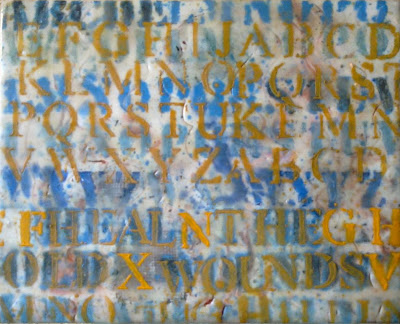 EFGHIJABCD
KLMNOPQRST
PQRSTUKLMN
VWXYZABCD
FHEALNTHEGH
OLDXWOUNDSV
MNO